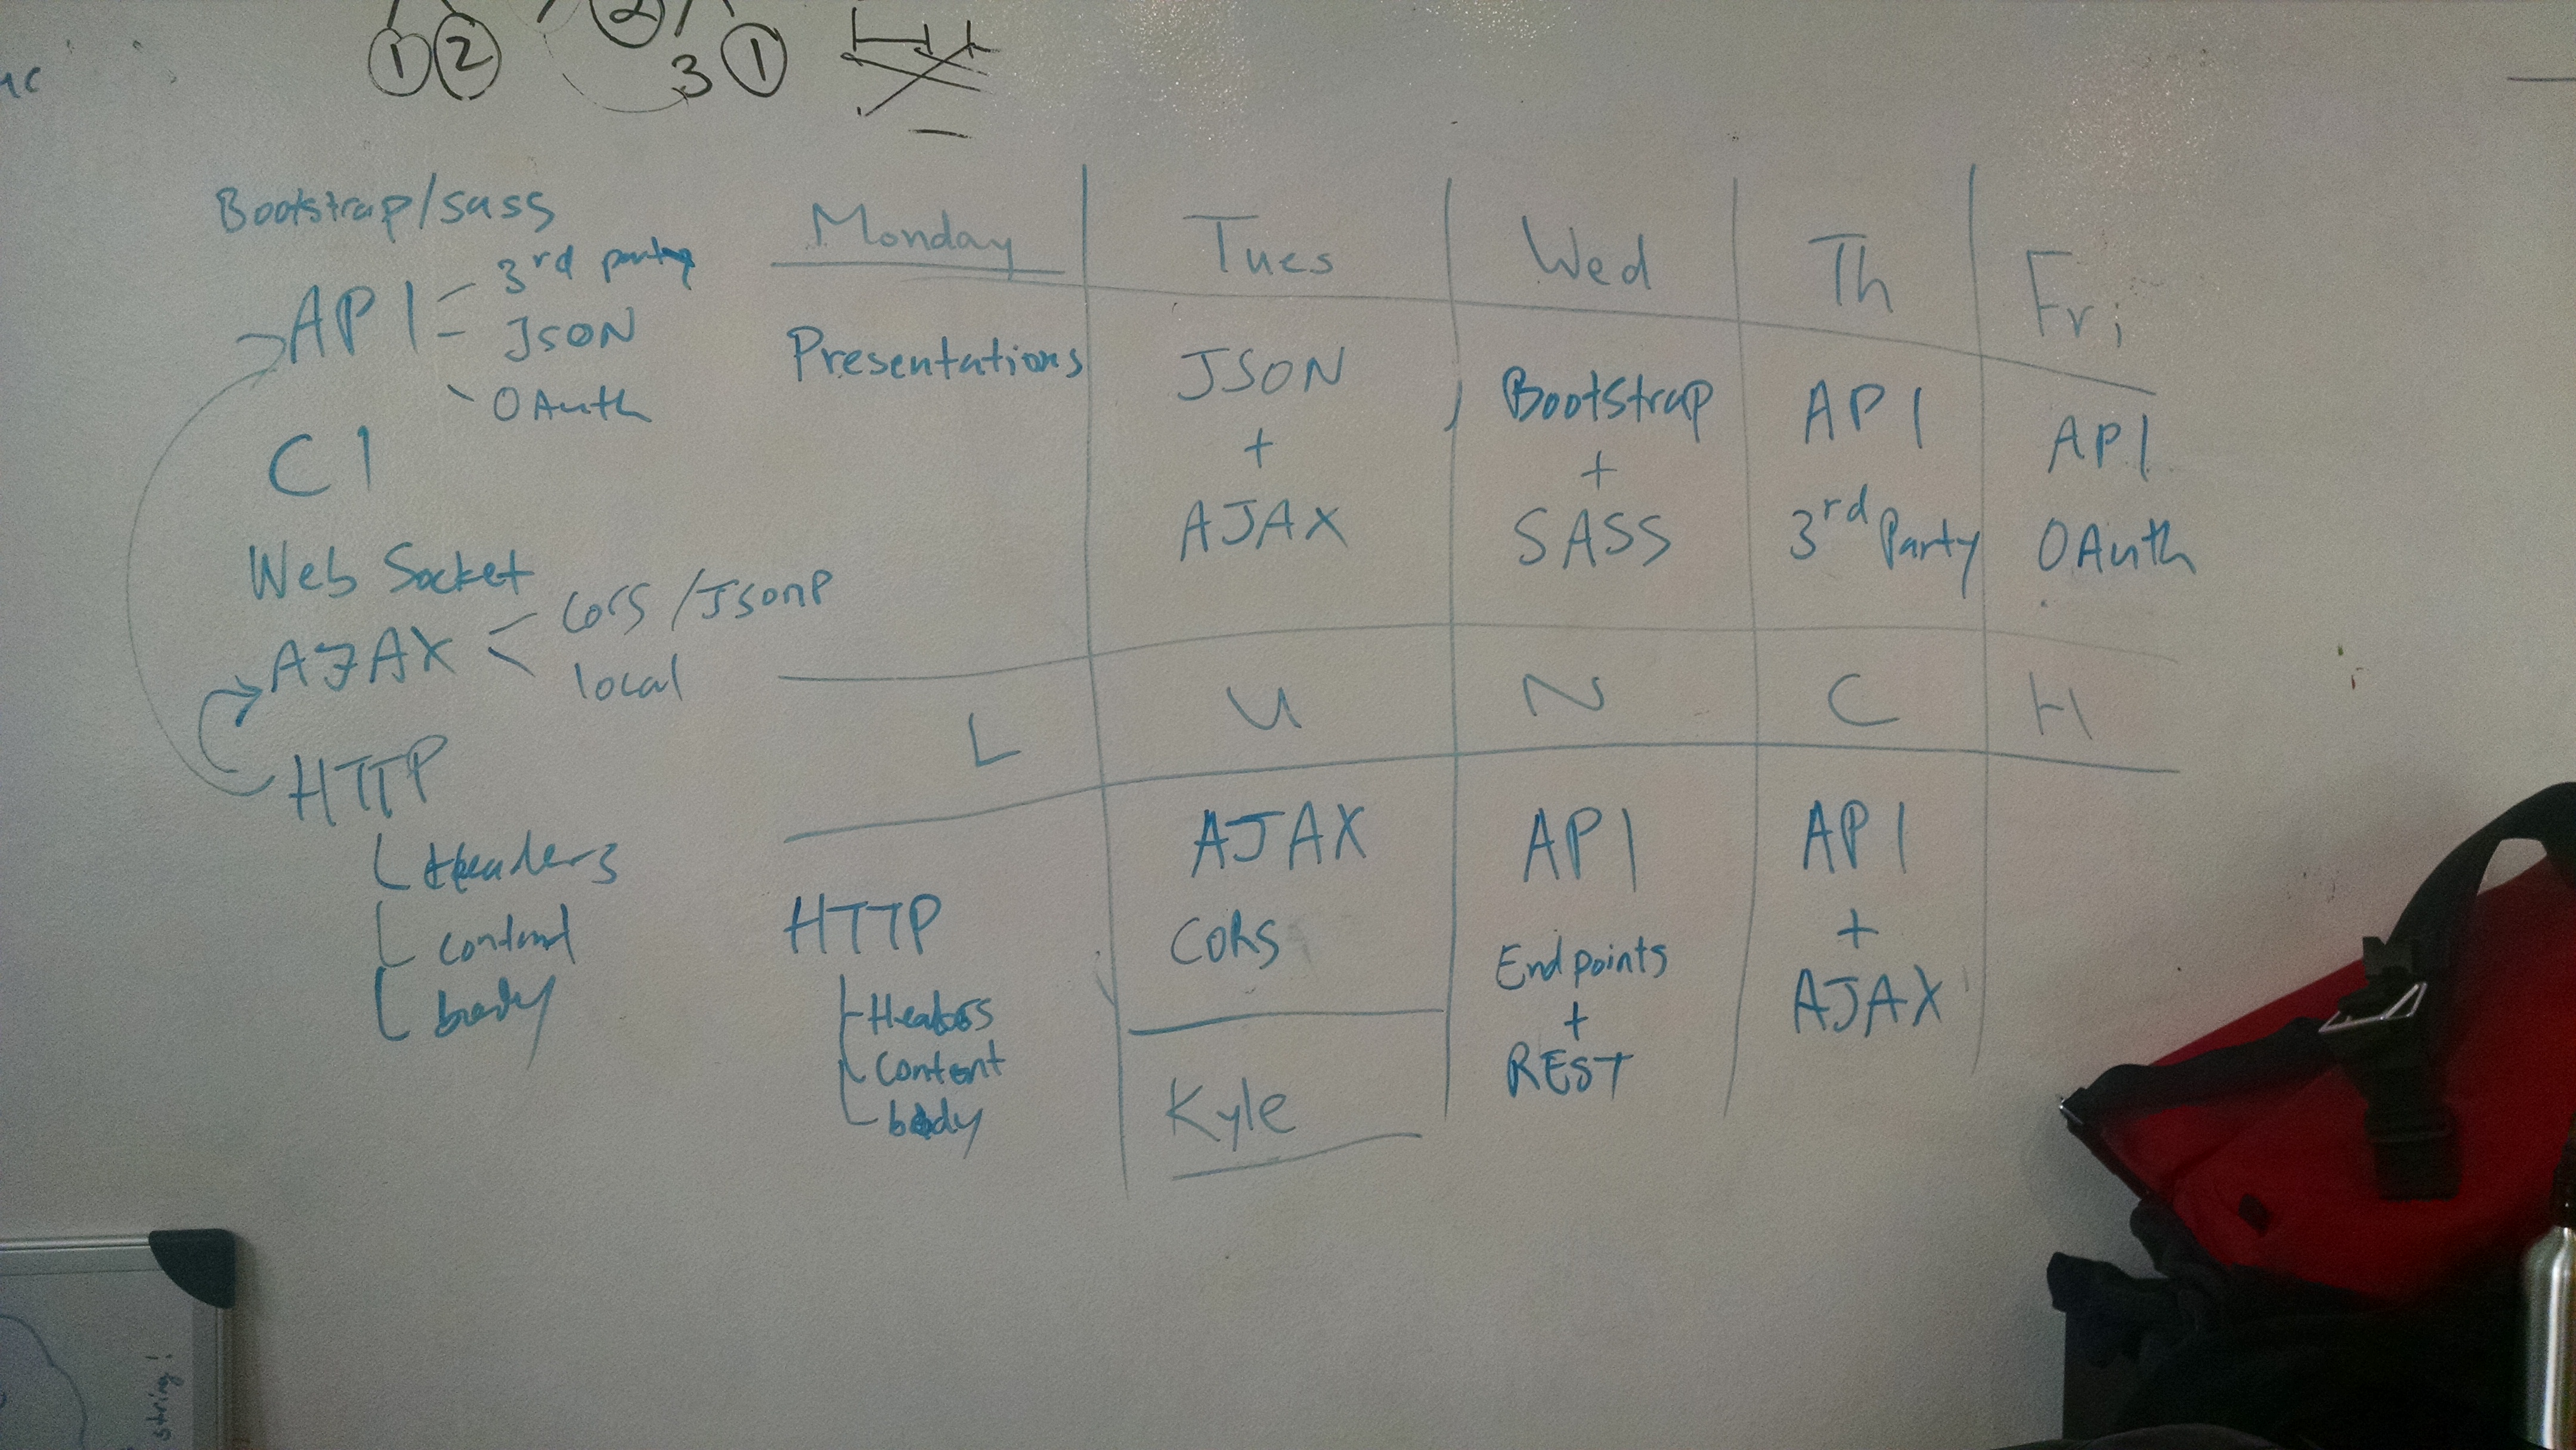 1 2
2
3 1
Bootstrap/sass
API
3rd party
JSON
OAuth
CI
Web Socket
AJAX
Cors / Jsonp
local
HTTP
Headers
content
body
Monday Tues Wed Th Fri
Presentations
JSON
+
AJAX
Bootstrap
+
SASS
API
3rd Party
API
OAuth
L U N C H
HTTP
Headers
Content
body
AJAX
CORS
Kyle
API
Endpoints
+
REST
API
+
AJAX
string!